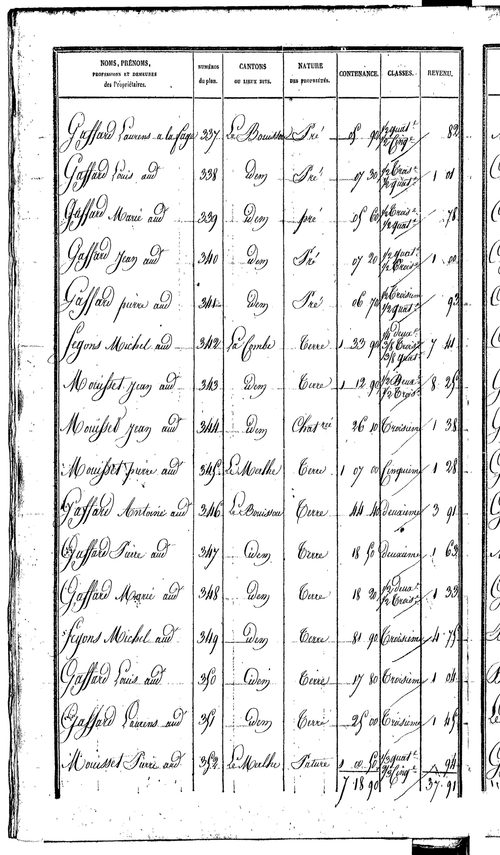 NOMS, PRÉNOMS, PROFESSIONS ET DEMEURES des Propriétaires. NUMÉROS du plan. CANTONS OU LIEUX DITS. NATURE DES PROPRIÉTÉS. CONTENANCE. CLASSES. REVENU.
Gaffard Laurens a la fage 337 Le Bouissou Pré 05 90 1/2 quat.e 1/2 Cinq.e 82
Gaffard Louis aud 338 idem Pré 07 30 1/2 Trois.e 1/2 quat.e 1 01
Gaffard Marie aud 339 idem pré 05 60 1/2 Trois.e 1/2 quat.e 78
Gaffard Jean aud 340 idem Pré 07 20 1/2 quat.e 1/2 Trois.e 1 00
Gaffard pierre aud 341 idem Pré 06 70 1/2 Troisieme 1/2 quat.e 93
fegons Michel aud 342 La Combe Terre 1 33 90 1/4 deux.e 3/8 Trois.e 3/8 quat.e 7 41
Mouisset Jean aud 343 idem Terre 1 12 90 1/2 Deux.e 1/2 Trois.e 8 25
Mouisset Jean aud 344 idem Chat.rie 26 10 Troisieme 1 38
Mouisset pierre aud 345 Le Malhe Terre 1 07 00 Cinquieme 1 28
Gaffard Antoine aud 346 Le Bouissou Terre 44 40 Deuxieme 3 91
Gaffard Pierre aud 347 idem Terre 18 50 Deuxieme 1 63
Gaffard Marie aud 348 idem Terre 18 20 1/2 deux.e 1/2 Trois.e 1 33
fegons Michel aud 349 idem Terre 81 90 Troisieme 4 75
Gaffard Louis aud 350 idem Terre 17 80 Troisieme 1 04
Gaffard Laurens aud 351 idem Terre 25 00 Troisieme 1 45
Mouisset Pierre aud 352 Le Malhe Pature 1 00 50 1/3 quat.e 2/3 Cinq.e 94
7 18 90 37 91